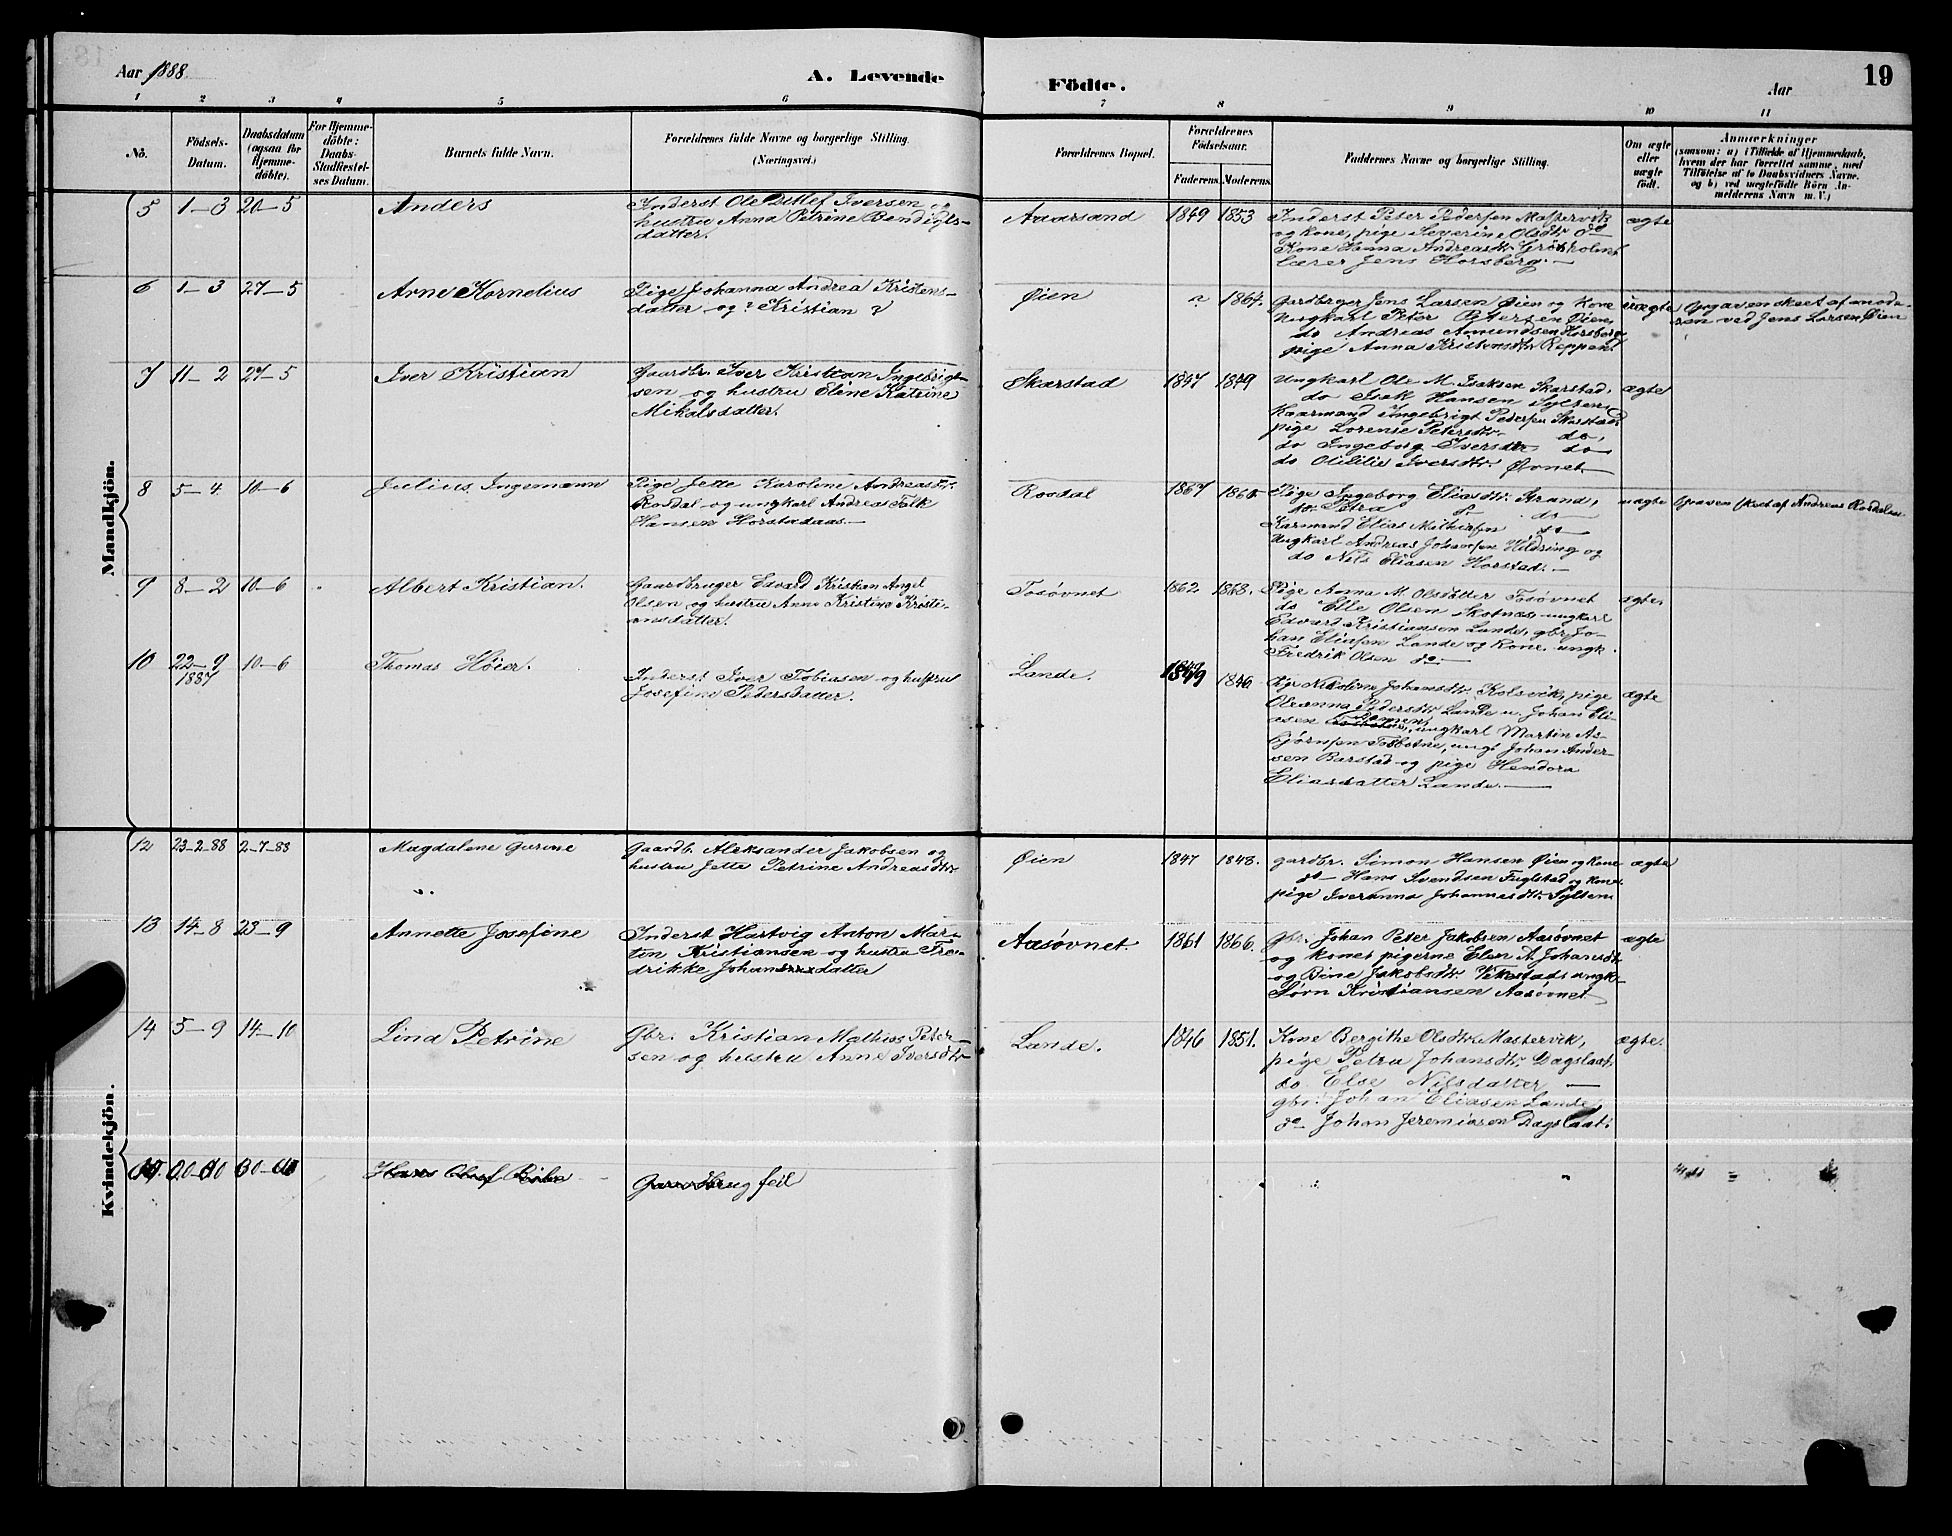 Aar 1888.
A. Levende Födte.
Aar
19
1 2 3 4 5 6 7 8 9 10 11
No.
Födsels-
Datum.
Daabsdatum
(ogsaa for
Hjemme-
döbte).
For Hjemme-
döbte:
Daabs-
Stadfæstel-
ses Datum.
Barnets fulde Navn.
Forældrenes fulde Navne og borgerlige Stilling
(Næringsvei.)
Forældrenes Bopæl.
Forældrenes
Födselsaar.
Faderens. Moderens.
Faddernes Navne og borgerlige Stilling.
Om ægte
eller
uægte
födt.
Anmærkninger
(saasom: a) i Tilfælde af Hjemmedaab,
hvem der har forrettet samme, med
Tilföielse af to Daabsvidners Navne.
og b) ved uægtefödte Börn An-
melderens Navn m. V.)
Mandkjön.
5 1–3 20–5
Anders
Inderst Ole Detlef Iversen og
hustru Anna Petrine Bendigts-
datter.
Aaarsand
1849 1853
Inderst Peter Pedersen
og kone, pige Severine Olsdtr do
Kone Hanna Andreasdtr
Lærer Jens Horsberg. –
ægte
6 1–3 27–5
Arne Kornelius
Pige Johanna Andrea Kristens-
datter og ? Kristian ?
Øien
? 1864.
Gardbrger Jens Larsen Øien og Kone
Ungkarl Peter Petersen Øien,
do Andreas Amundsen Horsberg
pige Anna Kristensdtr Reppen.
uægte
Opgaven skeet af mode-
ren ved Jens Larsen Øien
7 11–2 27–5
Iver Kristian
Gaardbr. Iver Kristian Ingebrigt-
sen og hustru Eline Katrine
Mikalsdatter.
Skarstad
1847 1849
Ungkarl Ole M. Isaksen Skarstad,
do Isak Hansen Sylten,
Kaarmand Ingebrigt Pedersen Skarstad
pige Lorense Petersdtr. do,
do Ingeborg Iversdtr do
do Olilie Iversdtr. Øvnet
ægte
8 5–4 10–6
Julius Ingemann
Pige Jette Karoline Andreasdtr.
Rosdal og ungkarl Andreas Falk
Hansen Horstadaas. –
Rosdal
1867
Pige Ingeborg Eliasdtr. Strand,
do. Petra do do
Karmand Elias do
Ungkarl Andreas Johansen Hildring og
do Nils Eliasen Horstad. –
uægte
Opgaven skeet af Andreas
9 8–2 10–6
Albert Kristian.
Gaardbruger Edvard Kristian Angel
Olsen og hustru Anne Kristine Kristi-
ansdatter.
Tosøvnet
1862 1868.
Pige Anna M. Olsdatter Tosøvnet
do Elle Olsen Skotnæs, ungkarl
Edvard Kristiansen Lande, gbr. Jo-
han Eliasen Lande og Kone, ungk.
Fredrik Olsen do. –
ægte.
10 22–9
1887
10–6
Thomas Høier.
Inderst Iver Tobiasen og hustru
Josefine Pedersdatter.
Lande.
1849 1846
Pige Nikoline Johansdtr. Kolsvik, pige
Oleanna Pedersdtr Lande u. Johan Eli-
asen ungkarl Martin As-
bjørnsen Tosbotne, ungk Johan Ander-
sen Barstad og pige Hendora
Eliasdatter Lande. –
ægte
Kvindekjön.
12 23–2–88 2–7–88
Magdalene Gurine
Gaardb. Aleksander Jakobsen og
hustru Jette Petrine Andreasdtr
Øien
1847 1848.
gardbr. Simon Hansen Øien og kone
do – Hans Svendsen Fuglstad og kone.
pige Iveranna Johannesdtr. Sylten
ægte
13 14–8 23–9
Annette Josefine
Inderst Hartvig Anton Mar-
tin Kristiansen og hustru Fre-
drikke Johansdatter
Aasøvnet.
1861 1866.
Gbr. Johan Peter Jakobsen Aasøvnet
og kone, pigerne Elen A. Johansdtr
og Bine Jakobsdtr. ungk.
Sørn Kristiansen Aasøvnet
ægte
14 5–9 14–10
Lina Petrine
Gbr. Kristian Mathias Peter-
sen og hustru Anne Iversdtr
Lande.
1846 1851.
Kone Bergithe Olsdtr. Mastervik,
pige Petra Johansdtr. Dagslaat,
do. Else Nilsdatter –
gbr. Johan Eliasen Lande,
do Johan Jeremiasen Dagslaat.
ægte.
Hans Olaf
Gaardbrug feil